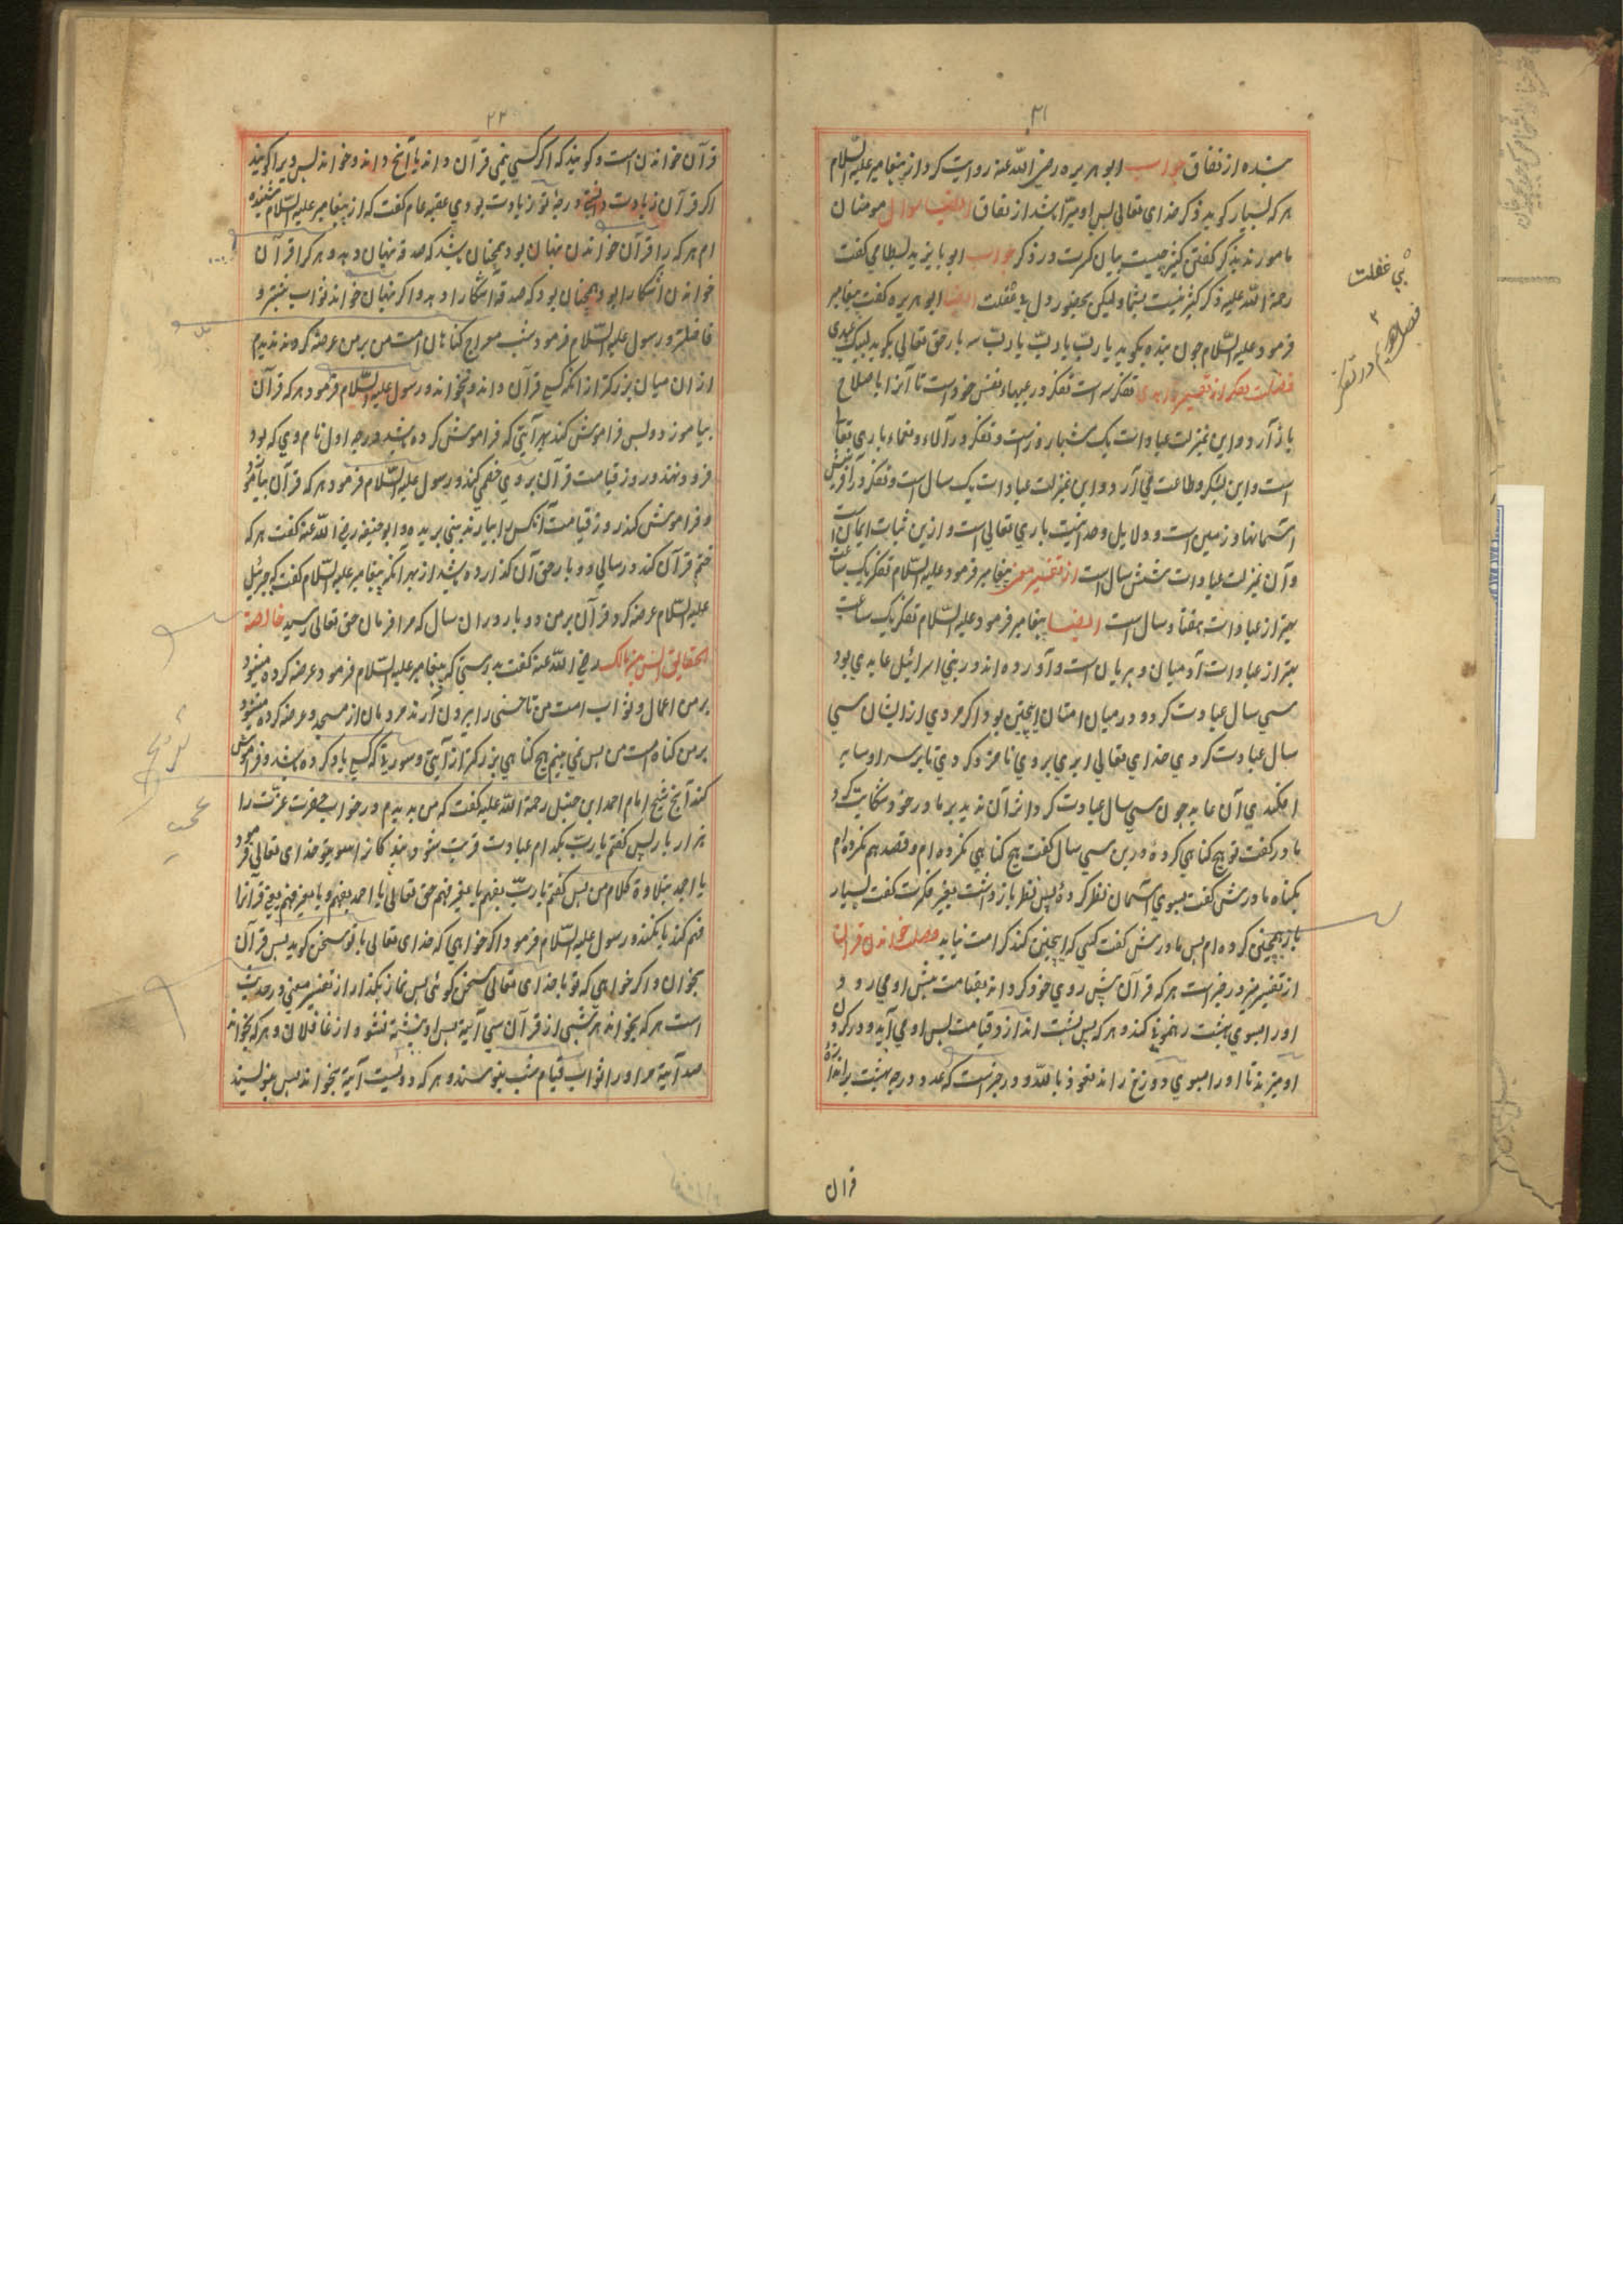 ۲۱
بنده از نفاق جواب ابو هریره رضی الله عنه روایت کرد از پیغامبر علیه السلام
هر که بسیار کوید ذکر خدای تعالی پس او مبرّا باشد از نفاق ایضا سوال مومنان
مامورند بذکر گفتن کثیر چیست بیان کثرت در ذکر جواب ابو بایزید بسطامی گفت
رحمة الله علیه ذکر کثیر نیست بشمار لیکن بحضور دل بی غفلت ایضا ابو هریره گفت پیغامبر
فرمود علیه السلام چون بنده بکوید یا ربّ یا ربّ یا ربّ سه بار حق تعالی بکوید لبیک عبدی
فضیلت تفکر از تفسیر تفکر سه است تفکر در عیبهاء نفس خود است تا آنرا باصلاح
باز آرد و این بمنزلت عبادات یک شبار روز است و تفکر در آلاء و نعماء باری تعالی
است و این بشکر و طاعت می آرد و این بمنزلت عبادات یک سال است و تفکر در آفرینش
آسمانها و زمین است و دلایل وحدانیت باری تعالی است و ازین ثبات ایمان است
و آن بمنزلت عبادات شش سال است از تفسیر پیغامبر فرمود علیه السلام تفکر یک ساعت
بهتر از عبادات هفتاد سال است ایضا پیغامبر فرمود علیه السلام تفکر یک ساعت
بهتر از عبادات آدمیان و پریان است و آورده اند در بنی اسرائیل عابدی بود
سی سال عبادت کرد و در میان امتان اینچنین بود اکر مردی از ایشان سی
سال عبادت کردی خدای تعالی ابری بروی نامزد کردی تا بر سر او سایه
افکندی آن عابد چون سی سال عبادت کرد اثر آن ندید بر مادر خود شکایت کرد
مادر کفت تو هیچ کناهی کرده درین سی سال کفت هیچ کناهی نکرده ام و قصد هم نکرده ام
بکناه مادرش کفت بسوی آسمان نظر کرده پس نظر باز داشت بغیر فکرت کفت بسیار
بار همچنین کرده ام پس مادرش کفت کسی که اینچنین کند کرامت نیابد فضیلت خواندن قران
از تفسیر در خبر است هر که قرآن پیش روی خود کرداند بقیامت پیش او می رود و
او را بسوی بهشت رهنمونی کند و هر که پس پشت اندازد قیامت پس او می آید و در کردن
او میزند تا او را بسوی دوزخ راند نعوذ بالله و در خبر است که عدد درجه بهشت برابر اندازهٔ
قران
بی غفلت
فصل در تفکر
۲۲
قرآن خواندن است و کویند که اکر کسی نمی قرآن داند یا آنچ داند و خواند پس ویرا کویند
اکر قرآن زیادت درجهٔ تو زیادت بودی عقبه عامر کفت که از پیغامبر علیه السلام شنیده
ام هر که را قرآن خواندن پنهان بود همچنان باشد که صدقه پنهان دهد و هر کرا قرآن
خواندن آشکارا بود همچنان بود که صدقه آشکارا دهد و اکر پنهان خواند ثواب بیشتر و
فاضلتر و رسول علیه السلام فرمود شب معراج کناهان امت من بر من عرضه کردند ندیدم
از ان میان بزرکتر از انکه کسی قرآن داند و نخواند و رسول علیه السلام فرمود هر که قرآن
بیاموزد و پس فراموش کند بهر آیتی که فراموش کرده باشد درجه اول نام وی که بود
فرود نهند و روز قیامت قرآن بر وی خصمی کند و رسول علیه السلام فرمود هر که قرآن بیاموزد
و فراموش کند روز قیامت آنکس را بیارند بینی بریده و ابو حنیفه رضی الله عنه کفت هر که
ختم قرآن کند در سالی دو بار حق آن کذارده باشد از بهر آنکه پیغامبر علیه السلام کفت که جبرئیل
علیه السلام عرضه کرد قرآن بر من دو بار در ان سال که مرا فرمان حق تعالی رسید خالصة
الحقایق انس بن مالک رضی الله عنه کفت بدرستی که پیغامبر علیه السلام فرمود عرضه کرده میشود
بر من اعمال و ثواب امت من تا خسی را بیرون آرند مردمان از مسجد و عرضه کرده میشود
بر من کناه امت من پس نمی بینم هیچ کناهی بزرکتر از آیتی و سورتی که کسی یاد کرده باشد و فراموش
کند آنچ شیخ امام احمد ابن حنبل رحمة الله علیه کفت که من بدیدم در خواب حضرت عزّت را
هزار بار پس کفتم یا ربّ بکدام عبادت قربت شود بندکانرا بسوی تو خدای تعالی فرمود
یا احمد بتلاوة کلام من پس کفتم یا ربّ بفهم یا بغیر فهم حق تعالی یا احمد بفهم و یا بغیر فهم یعنی قرآنرا
فهم کند یا نکند و رسول علیه السلام فرمود اکر خواهی که خدای تعالی با تو سخن کوید پس قرآن
بخوان و اکر خواهی که تو با خدای تعالی سخن کوئی پس نماز بکذار از تفسیر مغنی در حدیث
است هر که بخواند هر شبی از قرآن سی آیة پس او نبشته نشود از غافلان و هر که بخواند
صد آیة مر او را ثواب قیام شب بنویسند و هر که دویست آیة بخواند پس بنویسند